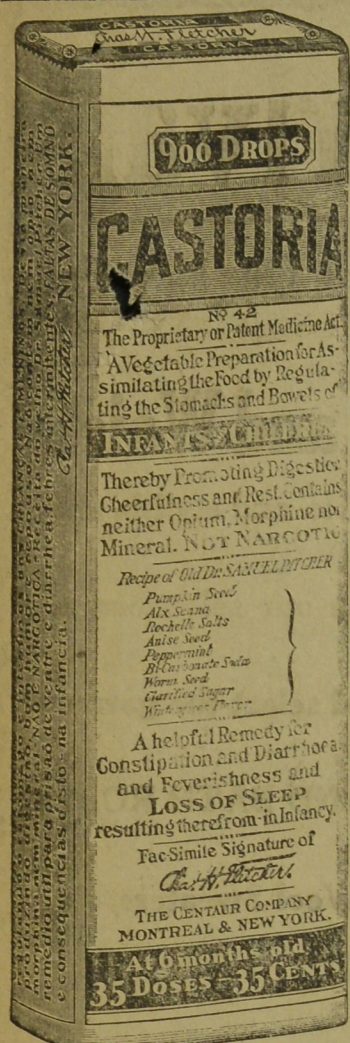 CASTORIA
Chas. H. Fletcher
CASTORIA
900 DROPS
CASTORIA
Nº 42
The Proprietary or Patent Medicine Act.
A Vegetable Preparation for As-
similating the Food by Regula-
ting the Stomachs and Bowels of
INFANTS CHILDREN
Thereby Promoting Digestion
Cheerfulness and Rest. Contains
neither Opium, Morphine nor
Mineral. NOT NARCOTIC
Recipe of Old Dr. SAMUEL PITCHER
Pumpkin Seed
Alx Senna
Rochelle Salts
Anise Seed
Peppermint
Bi-Carbonate Soda
Worm Seed
Clarified Sugar
Wintergreen Flavor
A helpful Remedy for
Constipation and Diarrhoea
and Feverishness and
LOSS OF SLEEP
resulting therefrom-in Infancy.
Fac-Simile Signature of
Chas. H. Fletcher.
THE CENTAUR COMPANY
MONTREAL & NEW YORK.
At 6 months old
35 DOSES - 35 CENTS
morphina nem mineral. NÃO É NARCOTICA. Receita do velho Dr. Samuel Pitcher. Um
remedio util para prisaõ de ventre e diarrhea, febres intermitentes, FALTAS DE SOMNO
e consequencias disto-na infancia. Chas. H. Fletcher. NEW YORK.